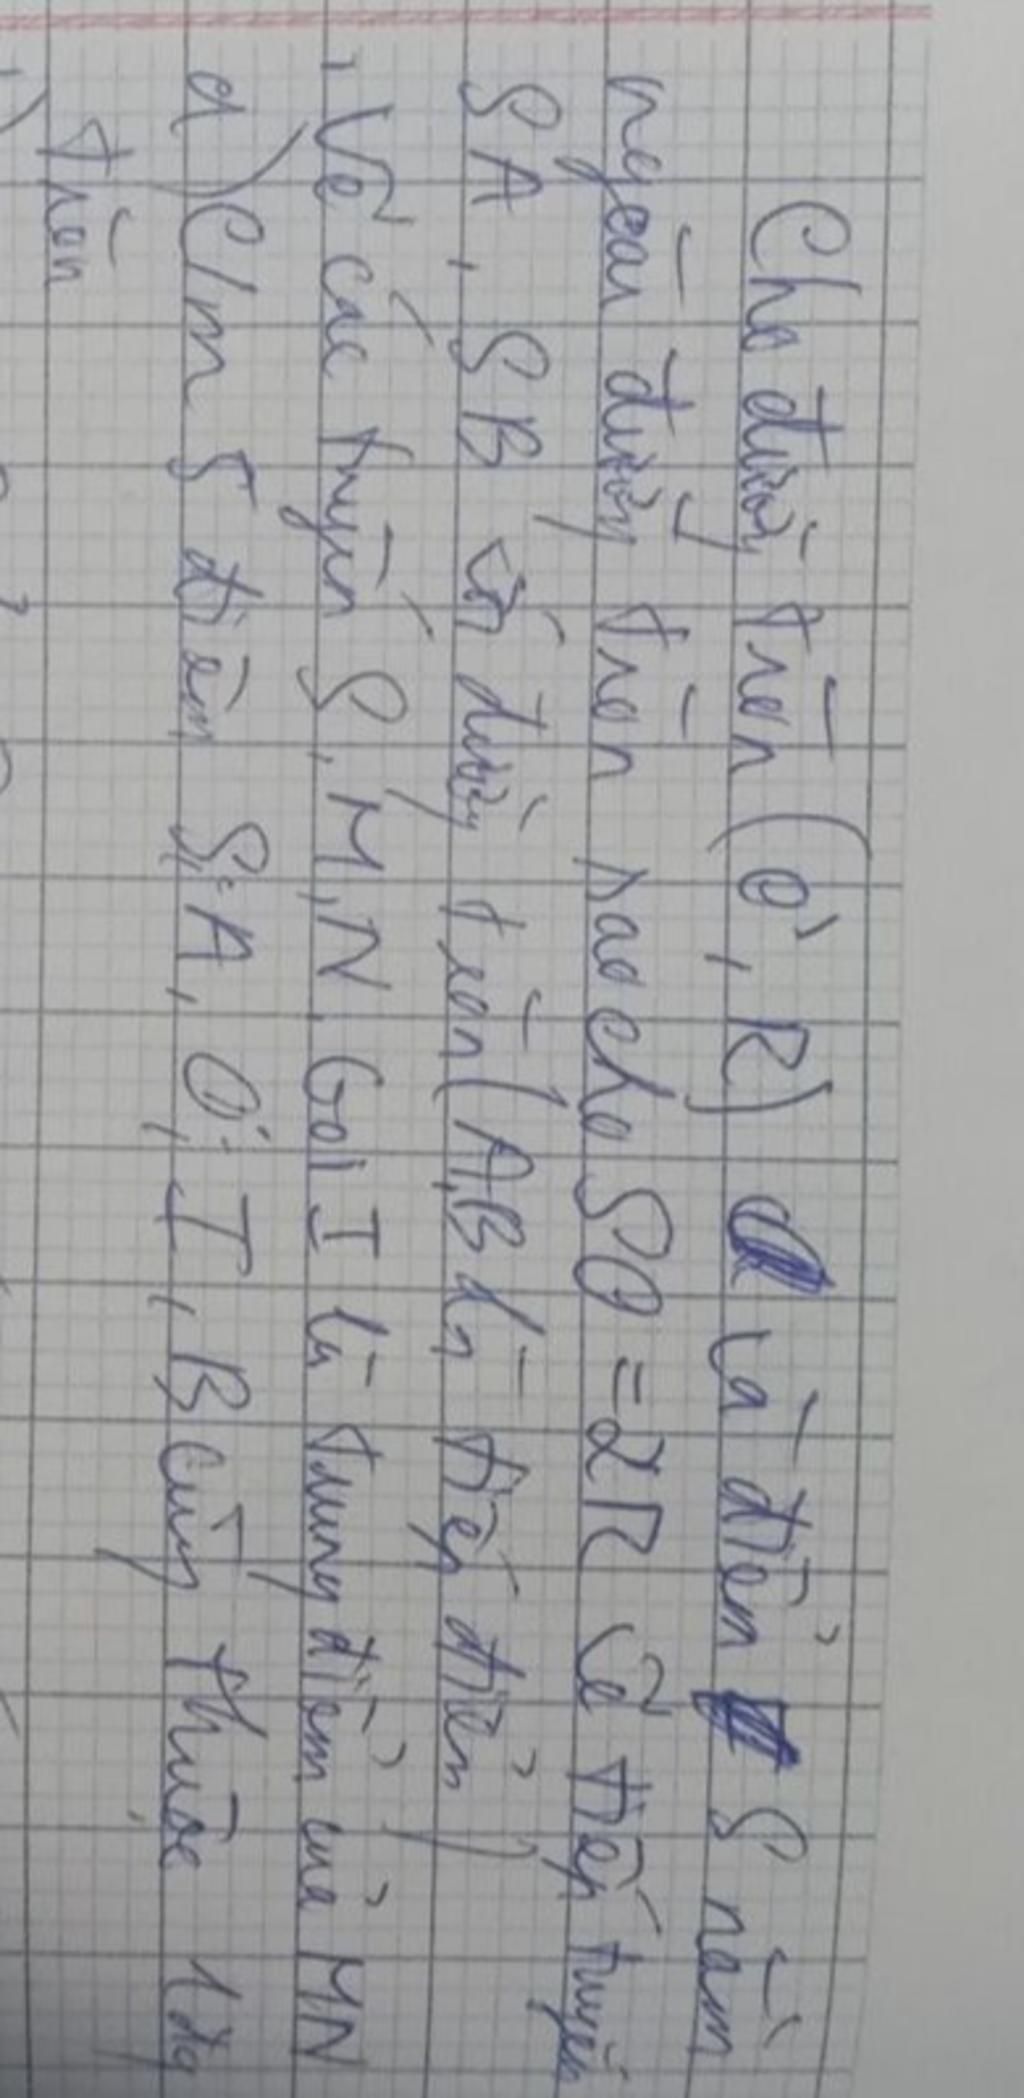 Cho đường tròn (O, R) là điểm S nằm
ngoài đường tròn sao cho SO = 2R vẽ tiếp tuyến
SA, SB với đường tròn (A, B là tiếp điểm)
, Vẽ cát tuyến S, M, N. Gọi I là trung điểm của MN
a) C/m 5 điểm S, A, O, I, B cùng thuộc 1 đg
tròn